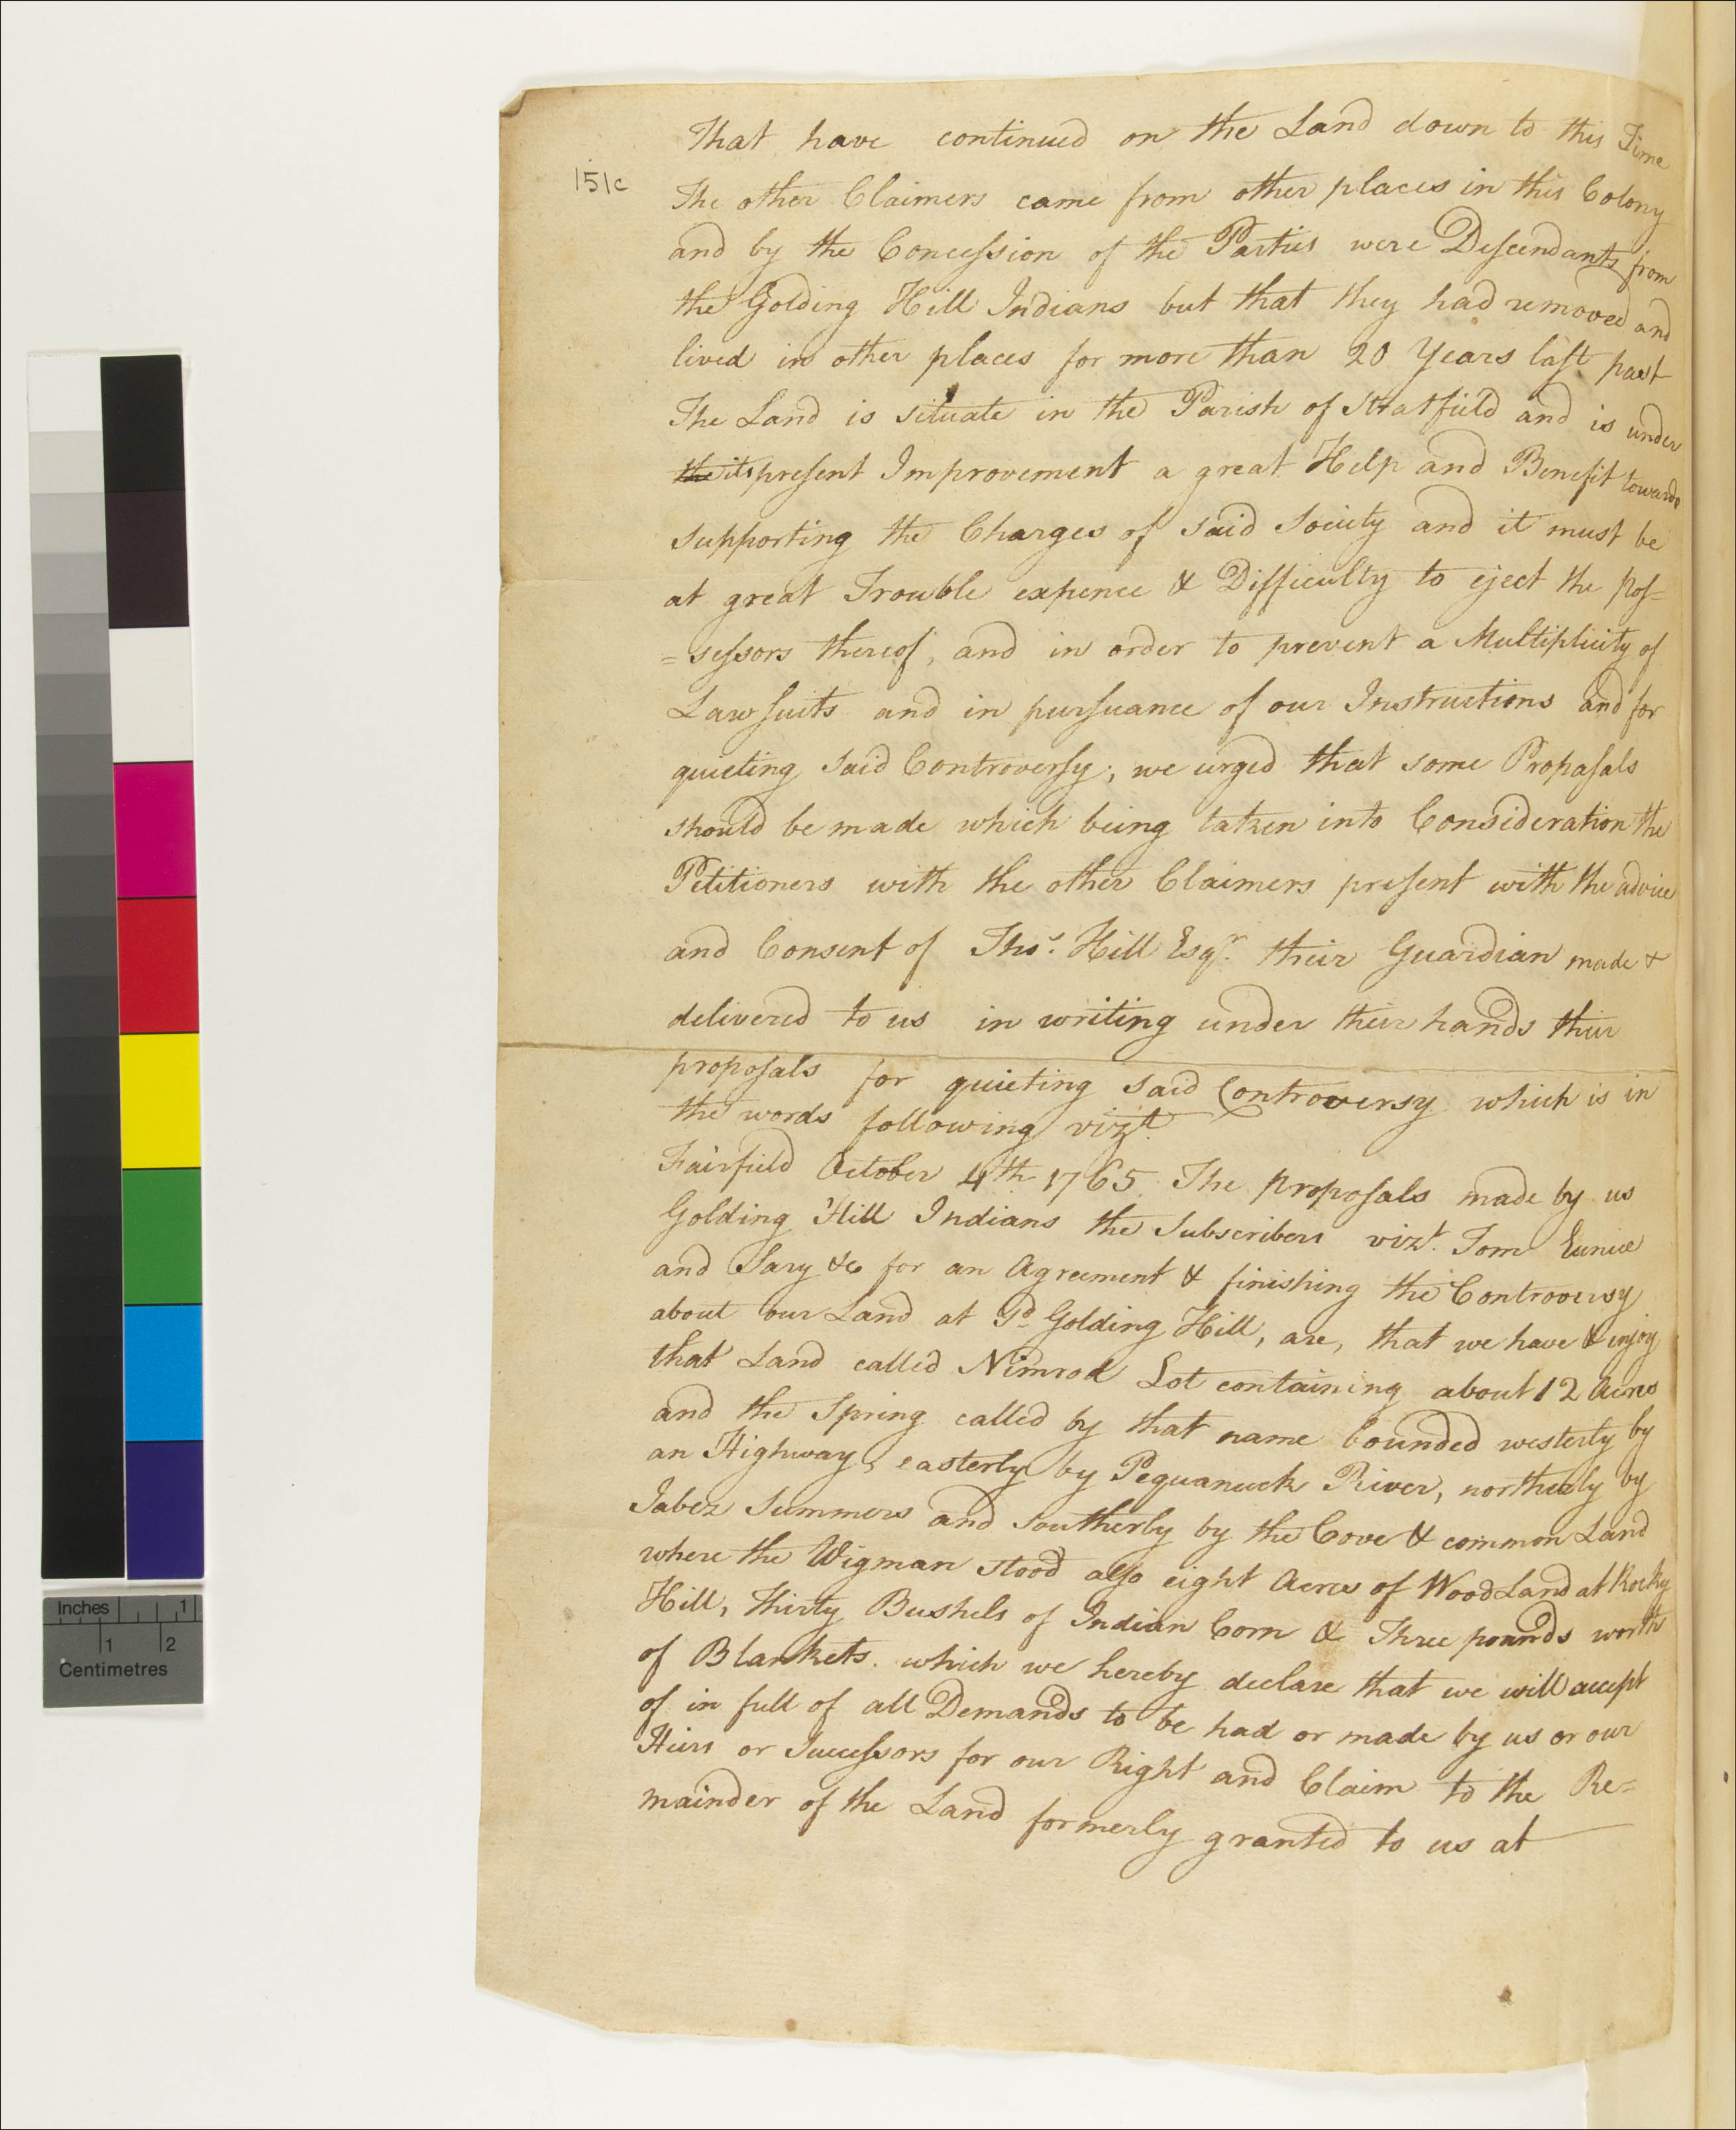 That have continued on the Land down to this Time
151c
The other Claimers came from other places in this Colony
and by the Concession of the Parties were Descendants from
the Golding Hill Indians but that they had removed and
lived in other places for more than 20 Years last past
The Land is situate in the Parish of Stratfield and is under
the its present Improvement a great Help and Benefit towards
supporting the Charges of said Society and it must be
at great Trouble expence & Difficulty to eject the pos=
=sessors thereof, and in order to prevent a Multiplicity of
Law suits and in pursuance of our Instructions and for
quieting said Controversy; we urged that some Proposals
should be made which being taken into Consideration the
Petitioners with the other Claimers present with the advice
and Consent of Thos. Hill Esqr. their Guardian made &
delivered to us in writing under their hands their
proposals for quieting said Controversy which is in
the words following vizt.
Fairfield October 4th 1765. The proposals made by us
Golding Hill Indians the Subscribers vizt. Tom Eunice
and Sary &c for an Agreement & finishing the Controversy
about our Land at Sd. Golding Hill, are, that we have & enjoy
that Land called Nimrod Lot containing about 12 Acres
and the Spring called by that name bounded westerly by
an Highway, easterly by Pequanuck River, northerly by
Jabez Summers and Southerly by the Cove & common Land
where the Wigman stood also eight Acres of Wood Land at Rocky
Hill, Thirty Bushels of Indian Corn & Three pounds worth
of Blankets. which we hereby declare that we will accept
of in full of all Demands to be had or made by us or our
Heirs or Successors for our Right and Claim to the Re=
mainder of the Land formerly granted to us at
Inches 1
1 2
Centimetres